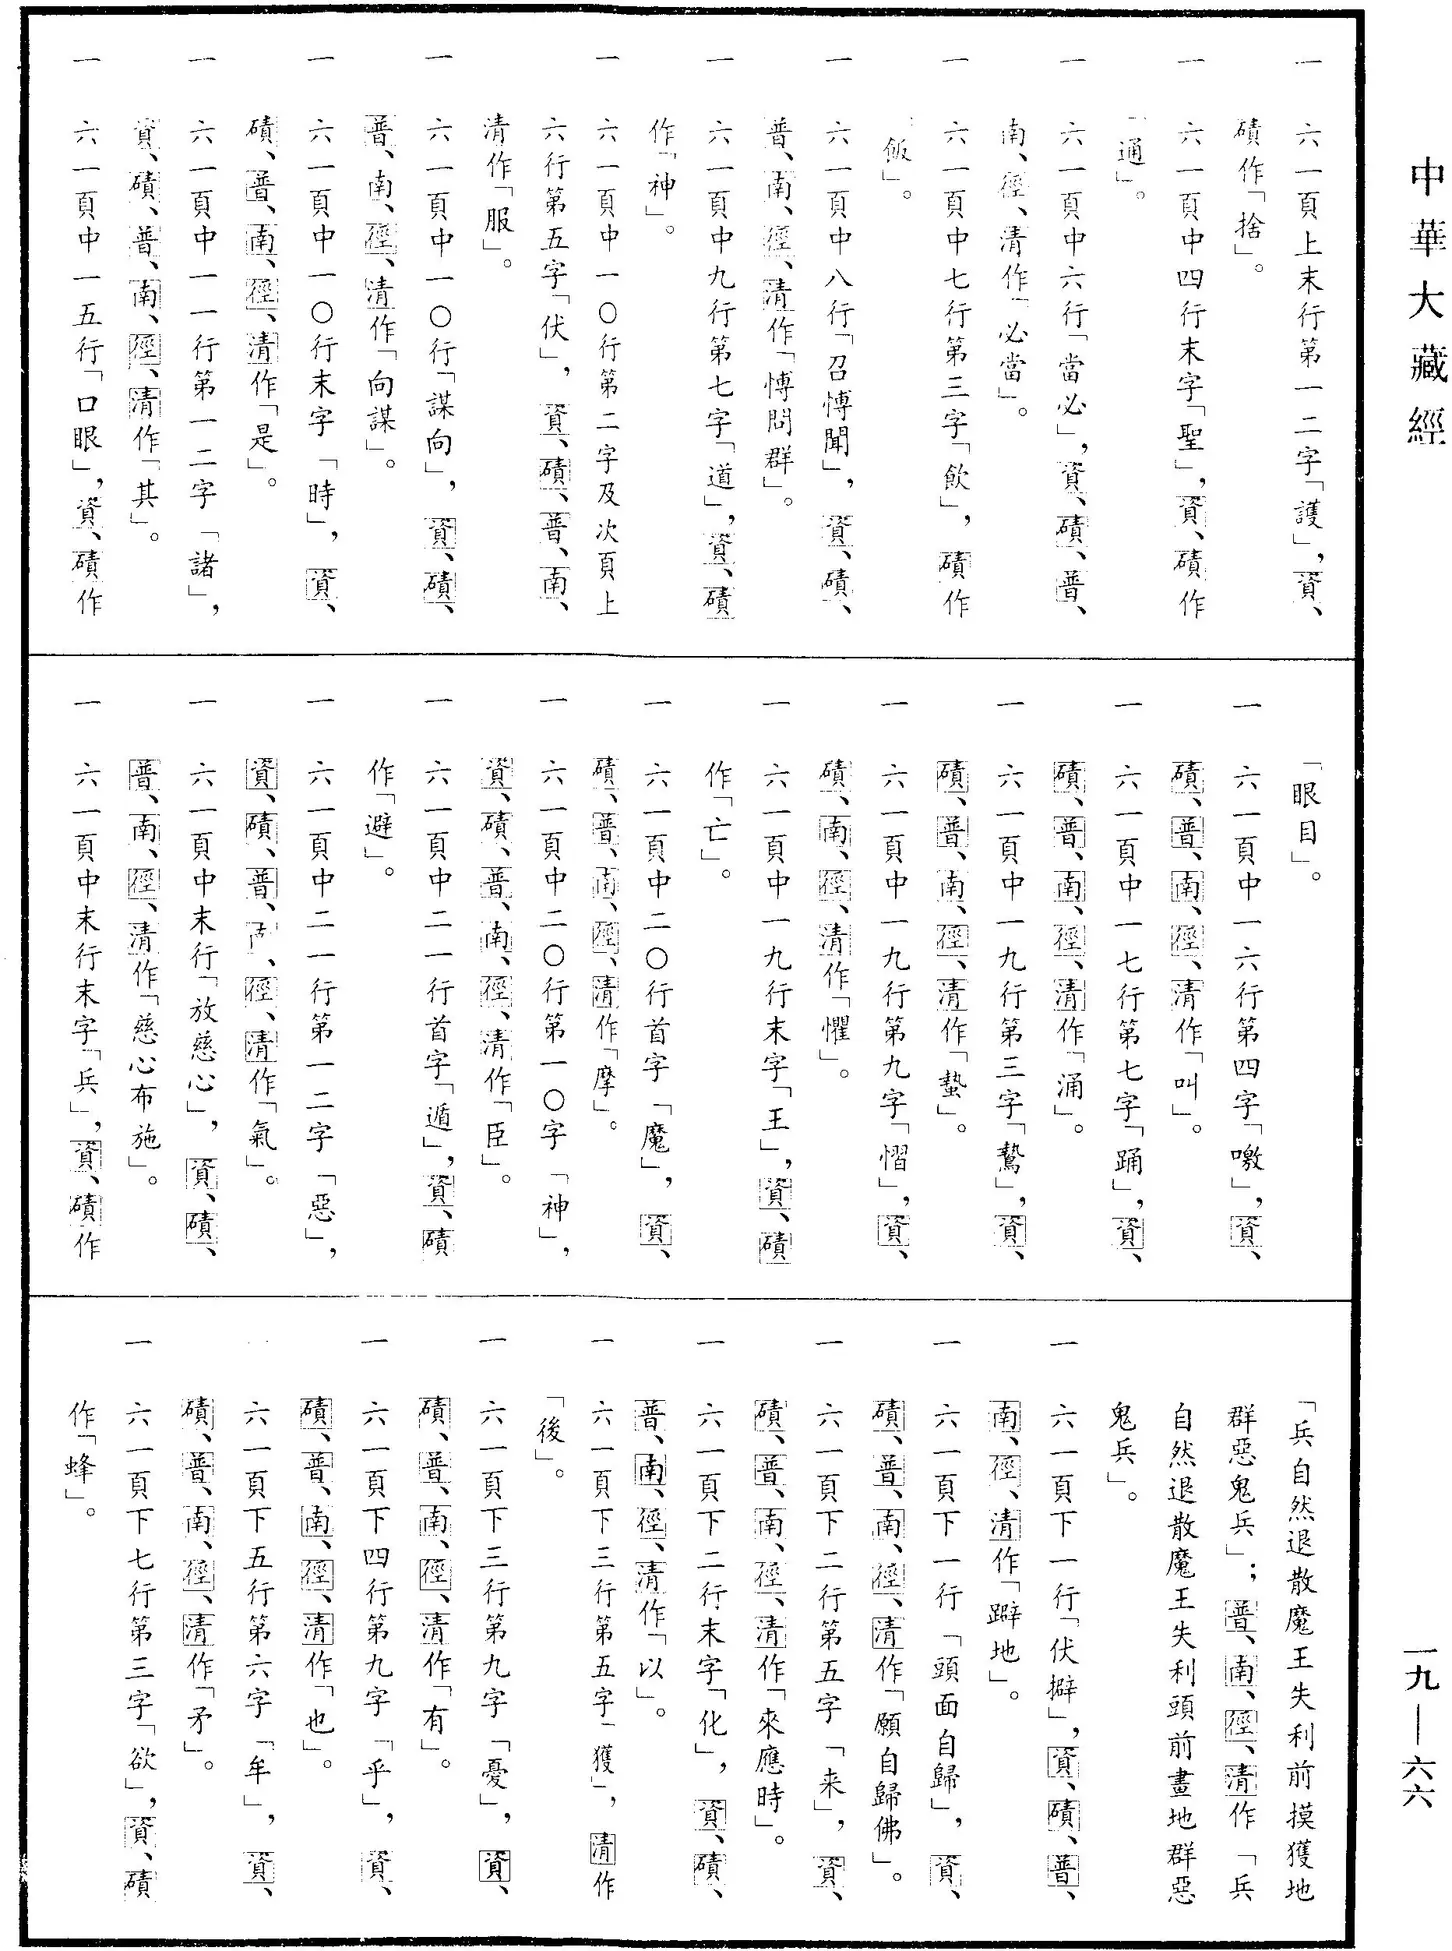 中華大藏經
一 六一頁上末行第一二字「護」，資、
磧作「捨」。
一 六一頁中四行末字「聖」，資、磧作
「通」。
一 六一頁中六行「當必」，資、磧、普、
南、徑、清作「必當」。
一 六一頁中七行第三字「飲」，磧作
「飯」。
一 六一頁中八行「召愽聞」，資、磧、
普、南、徑、清作「愽問群」。
一 六一頁中九行第七字「道」，資、磧
作「神」。
一 六一頁中一〇行第二字及次頁上
六行第五字「伏」，資、磧、普、南、
清作「服」。
一 六一頁中一〇行「謀向」，資、磧、
普、南、徑、清作「向謀」。
一 六一頁中一〇行末字「時」，資、
磧、普、南、徑、清作「是」。
一 六一頁中一一行第一二字「諸」，
資、磧、普、南、徑、清作「其」。
一 六一頁中一五行「口眼」，資、磧作
「眼目」。
一 六一頁中一六行第四字「噭」，資、
磧、普、南、徑、清作「叫」。
一 六一頁中一七行第七字「踊」，資、
磧、普、南、徑、清作「涌」。
一 六一頁中一九行第三字「騺」，資、
磧、普、南、徑、清作「蟄」。
一 六一頁中一九行第九字「慴」，資、
磧、南、徑、清作「懼」。
一 六一頁中一九行末字「王」，資、磧
作「亡」。
一 六一頁中二〇行首字「魔」，資、
磧、普、南、徑、清作「摩」。
一 六一頁中二〇行第一〇字「神」，
資、磧、普、南、徑、清作「臣」。
一 六一頁中二一行首字「遁」，資、磧
作「避」。
一 六一頁中二一行第一二字「惡」，
資、磧、普、南、徑、清作「氣」。
一 六一頁中末行「放慈心」，資、磧、
普、南、徑、清作「慈心布施」。
一 六一頁中末行末字「兵」，資、磧作
「兵自然退散魔王失利前摸獲地
群惡鬼兵」；普、南、徑、清作「兵
自然退散魔王失利頭前畫地群惡
鬼兵」。
一 六一頁下一行「伏擗」，資、磧、普、
南、徑、清作「躃地」。
一 六一頁下一行「頭面自歸」，資、
磧、普、南、徑、清作「願自歸佛」。
一 六一頁下二行第五字「来」，資、
磧、普、南、徑、清作「來應時」。
一 六一頁下二行末字「化」，資、磧、
普、南、徑、清作「以」。
一 六一頁下三行第五字「獲」，清作
「後」。
一 六一頁下三行第九字「憂」，資、
磧、普、南、徑、清作「有」。
一 六一頁下四行第九字「乎」，資、
磧、普、南、徑、清作「也」。
六一頁下五行第六字「牟」，資、
磧、普、南、徑、清作「矛」。
一 六一頁下七行第三字「欲」，資、磧
作「蜂」。
一九—六六